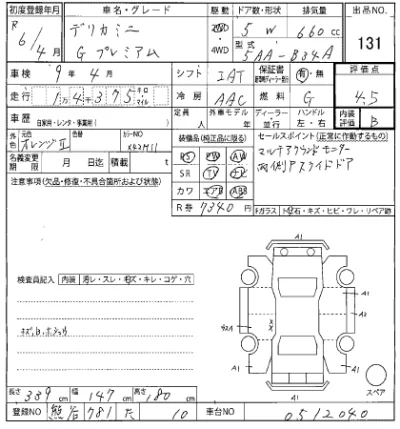 初度登録年月 車名・グレード 駆動 ドア数・形状 排気量 出品NO.
R 6/4月 デリカミニ 2WD 5 W 660cc 131
G プレミアム 4WD 型式 5AA-B34A
車検 9年4月 シフト IAT 保証書 有・無 評価点
走行 1万4千375 キロ マイル 冷房 AAC 燃料 G 4.5
車歴 自家用・レンタ・事業用( ) 定員 人 外車モデル 年 ディーラー 並行 ハンドル 左・右 内装評価 B
外色 元色 オレンジⅡ 色替 カラーNO 装備品(純正品に限る) セールスポイント(正常に作動するもの)
名義変更期限 月 日迄 積載 t PS PW AW マルチアラウンドモニター
注意事項(欠品・修復・不具合箇所及び状態) SR TV ナビ 両側P.スライドドア
カワ エアB ABS
R券 7340円 Fガラス トビ石・キズ・ヒビ・ワレ・リペア跡
A1
検査員記入 内装 汚レ・スレ・キズ・キレ・コゲ・穴
A1
A1
A1 A1
スペア
長さ 339cm 幅 147cm 高さ 180cm
登録NO 熊谷 781 た 10 車台NO 0512040